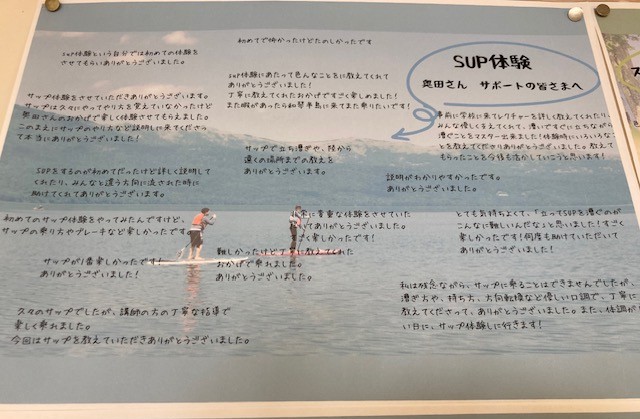 SUP体験
奥田さん サポートの皆さまへ
sup体験という自分では初めての体験を
させてもらいありがとうございました。
初めてで怖かったけどたのしかったです
サップ体験をさせていただきありがとうございます。
サップは久々にやってやり方を覚えていなかったけど
奥田さんのおかげで楽しく体験させてもらえました。
このまえにサップのやり方など説明しに来てくださっ
て本当にありがとうございます!
sup体験にあたって色んなことをに教えてくれて
ありがとうございました!
丁寧に教えてくれたおかげですごく楽しめました!
また暇があったら和琴半島に来てまた乗りたいです!
事前に学校に来てレクチャーを詳しく教えてくれたり、
みんな優しく支えてくれて、漕いですぐに立ちながら
漕ぐことをマスター出来ました!体験時にいろいろな
ことを教えてくださりありがとうございました。教えて
もらったことを今後も活かしていこうと思います!
サップで立ち漕ぎや、陸から
遠くの場所までの教えを
ありがとうございます。
SUPをするのが初めてだったけど詳しく説明して
くれたり、みんなと違う方向に流された時に
助けてくれてありがとうございます。
説明がわかりやすかったです。
ありがとうございました。
初めてのサップ体験をやってみたんですけど、
サップの乗り方やブレーキなど楽しかったです
に貴重な体験をさせていた
いてありがとうございました。
ごく楽しかったです!
とても気持ちよくて、「立ってSUPを漕ぐのが
こんなに難しいんだな」と思いました!すごく
楽しかったです!何度も助けていただいて
ありがとうございました!
サップが1番楽しかったです!
ありがとうございました!
難しかったけど丁寧に教えてくれた
おかげで乗れました。
ありがとうございました。
私は残念ながら、サップに乗ることはできませんでしたが、
漕ぎ方や、持ち方、方向転換など優しい口調で、丁寧に
教えてくださって、ありがとうございました。また、体調が
い日に、サップ体験しに行きます!
久々のサップでしたが、講師の方の丁寧な指導で
楽しく乗れました。
今回はサップを教えていただきありがとうございました。